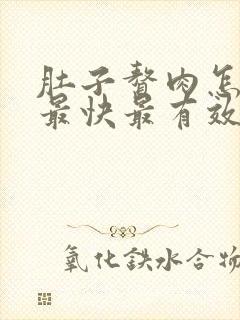 肚子赘肉怎
最快最有效
氧化鉄水合物